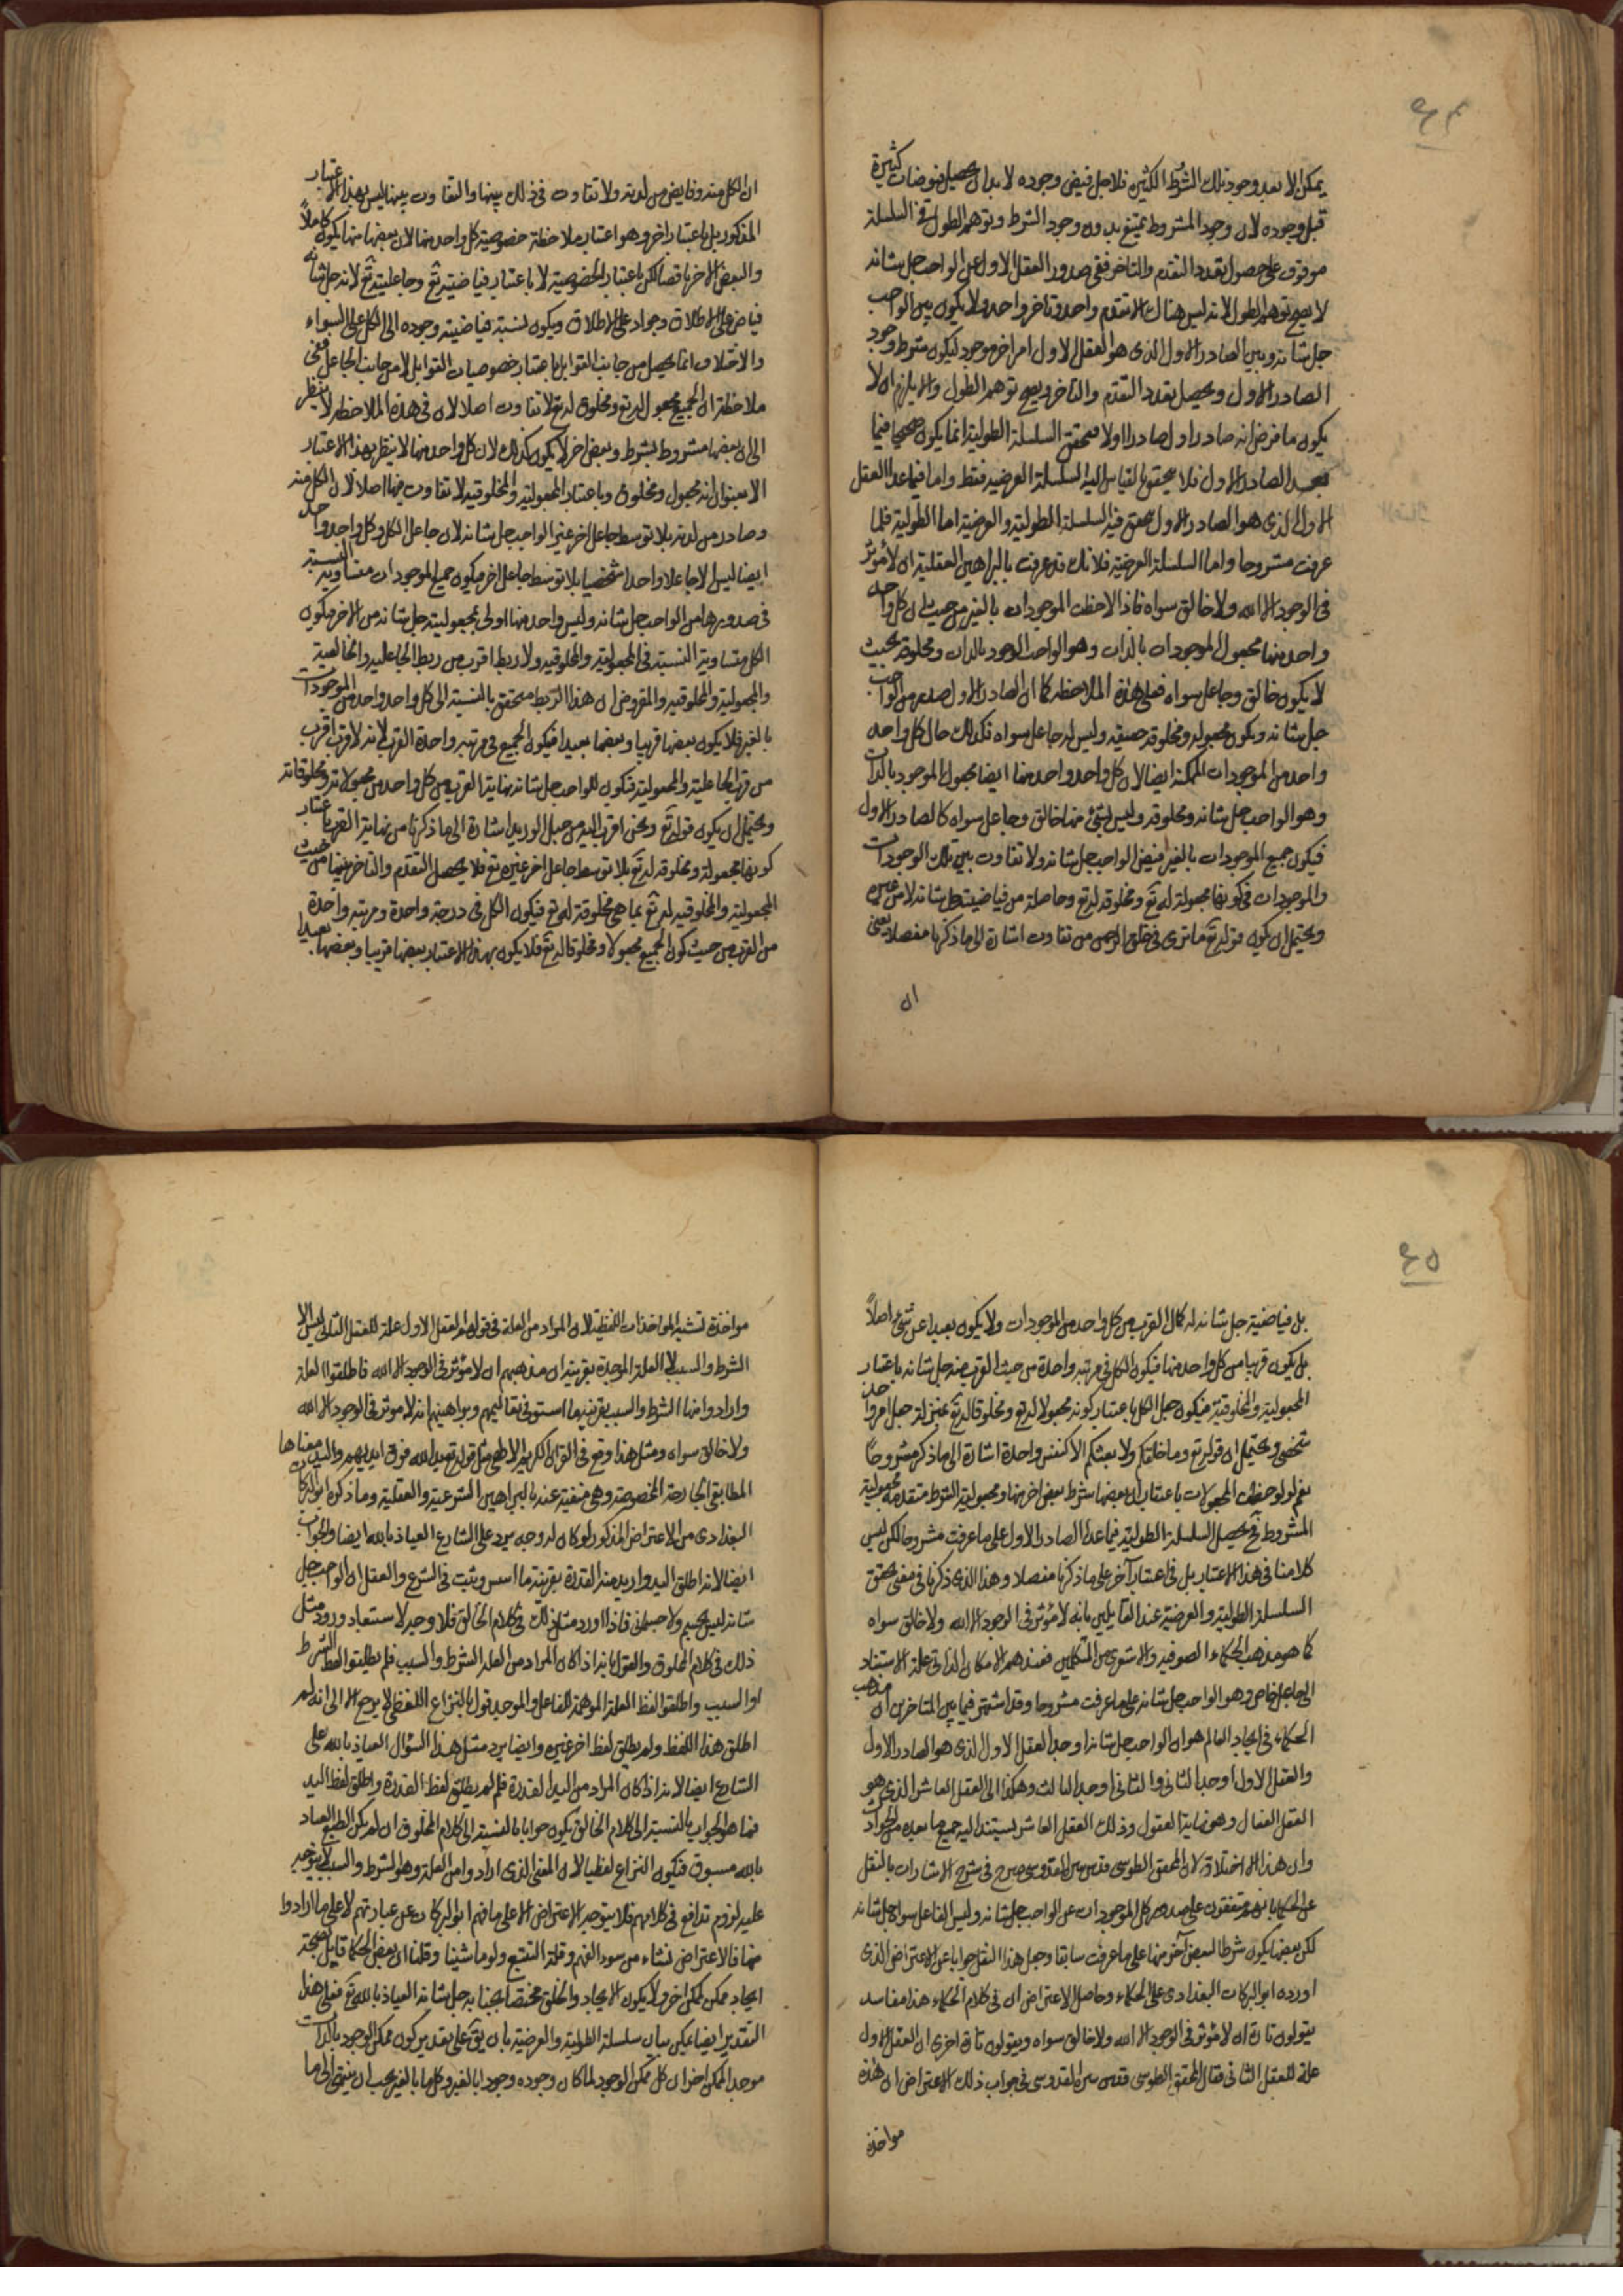 ٩٤
يمكن الا بعد وجود تلك الشروط الكثيرة فلاجل فيض وجوده لا بد ان يحصل فيوضات كثيرة
قبل وجوده لان وجود المشروط يمتنع بدون وجود الشرط وتوهم الطول في السلسلة
موقوف على حصول تعدد التقدم والتاخر ففي صدور العقل الاول عن الواجب جل شانه
لا يصح توهم الطول لانه ليس هناك الا تقدم واحد وتاخر واحد ولا يكون بين الواجب
جل شانه وبين الصادر الاول الذى هو العقل الاول امر اخر موجود ليكون شرط وجود
الصادر الاول ويحصل تعدد التقدم والتاخر ويصح توهم الطول والا يلزم ان لا
يكون ما فرض انه صادر اول صادرا اولا فتحقق السلسلة الطولية انما يكون صحيحا فيما
بعد الصادر الاول فلا يتحقق بالقياس اليه السلسلة العرضية فقط واما فيما عدا العقل
الاول الذى هو الصادر الاول يتحقق فيه السلسلة الطولية والعرضية اما الطولية فلما
عرفت مشروحا واما السلسلة العرضية فلانك قد عرفت بالبراهين العقلية ان لا مؤثر
فى الوجود الا الله ولا خالق سواه فاذا لاحظت الموجودات بالغير من حيث ان كل واحد
واحد منها مجعول الموجود بالذات وهو الواجب الوجود بالذات ومخلوقه بحيث
لا يكون خالق وجاعل سواه فعلى هذه الملاحظة كما ان الصادر الاول صدر من الواجب
جل شانه ويكون مجعوله ومخلوقه حقيقة وليس له جاعل سواه فكذلك حال كل واحد
واحد من الموجودات الممكنة ايضا لان كل واحد واحد منها ايضا مجعول الموجود بالذات
وهو الواجب جل شانه ومخلوقه وليس لشئ منها خالق وجاعل سواه كالصادر الاول
فيكون جميع الموجودات بالغير فيض الواجب جل شانه ولا تفاوت بين تلك الوجودات
والموجودات فى كونها مجعولة له تع ومخلوقة له تع وحاصلة من فياضيته جل شانه لا من غيره
ويحتمل ان يكون قوله تع ما ترى فى خلق الرحمن من تفاوت اشارة الى ما ذكرنا مفصلا يعنى
ان
ان الكل منه وفايض من لدنه ولا تفاوت فى ذلك بينها والتفاوت بينها ليس بهذا الاعتبار
المذكور بل باعتبار اخر وهو اعتبار ملاحظة خصوصية كل واحد منها لان بعضها منها يكون كاملاً
والبعض الاخر ناقصا لكن باعتبار الخصوصية لا باعتبار فياضيته تع وجاعليته تع لانه جل شانه
فياض على الاطلاق وجواد على الاطلاق ويكون نسبة فياضيته وجوده الى الكل على السواء
والاختلاف انما يحصل من جانب القوابل باعتبار خصوصيات القوابل لا من جانب الجاعل ففى
ملاحظة ان الجميع مجعول له تع ومخلوق له تع لا تفاوت اصلا لان فى هذه الملاحظة لا ينظر
الى ان بعضها مشروط بشرط وبعض اخر لا يكون كذلك لان كل واحد منها لا ينظر بهذا الاعتبار
الا بعنوان انه مجعول ومخلوق وباعتبار المجعولية والمخلوقية لا تفاوت فيها اصلا لان الكل منه
وصادر من لدنه بلا توسط جاعل اخر غير الواجب جل شانه لان جاعل الكل وكل واحد واحد
ايضا ليس الا جاعلا واحدا شخصيا بلا توسط جاعل اخر فيكون جميع الموجودات متساوية النسبة
فى صدورها من الواجب جل شانه وليس واحد منها اولى بمجعوليته جل شانه من الاخر فيكون
الكل متساوية النسبة فى المجعولية والمخلوقية ولا ربط اقرب من ربط الجاعلية والخالقية
والمجعولية والمخلوقية والمفروض ان هذا الربط متحقق بالنسبة الى كل واحد واحد من الموجودات
بالغير فلا يكون بعضها قريبا وبعضها بعيدا فيكون الجميع فى مرتبة واحدة القرب لانه لا قرب اقرب
من قرب الجاعلية والمجعولية فيكون للواجب جل شانه نهاية القرب من كل واحد من مجعولاته ومخلوقاته
ويحتمل ان يكون قوله تع ونحن اقرب اليه من حبل الوريد اشارة الى ما ذكرنا من نهاية القرب باعتبار
كونها مجعولة ومخلوقة له تع بلا توسط جاعل اخر غيره تع فلا يحصل التقدم والتاخر بينها من حيث
المجعولية والمخلوقية له تع بما هى مخلوقة له تع فيكون الكل فى درجة واحدة ومرتبة واحدة
من القرب من حيث كون الجميع مجعولا ومخلوقا له تع فلا يكون بهذا الاعتبار بعضها قريبا وبعضها بعيدا
٩٥
بل فياضيته جل شانه له كمال القرب من كل واحد من الموجودات ولا يكون بعيدا عن شئ اصلاً
بل يكون قريبا من كل واحد منها فيكون الكل فى مرتبة واحدة من حيث القرب منه جل شانه باعتبار
المجعولية والمخلوقية فيكون جعل الكل باعتبار كونه مجعولا له تع ومخلوقا له تع بمنزلة جعل امر واحد
شخصى ويحتمل ان قوله تع وما خلقكم ولا بعثكم الا كنفس واحدة اشارة الى ما ذكر مشروحاً
نعم لو لوحظت المجعولات باعتبار ان بعضها شرط بعض اخر منها ومجعولية الشرط متقدمة مجعولية
المشروط تع فيحصل السلسلة الطولية فيما عدا الصادر الاول على ما عرفت مشروحا لكن ليس
كلامنا فى هذا الاعتبار بل فى اعتبار آخر على ما ذكرنا مفصلا وهذا الذى ذكرنا فى معنى تحقق
السلسلة الطولية والعرضية عند القايلين بانه لا مؤثر فى الوجود الا الله ولا خالق سواه
كما هو مذهب الحكماء الصوفية والاشعرى من المتكلمين فعندهم الامكان الذاتى علة الاستناد
الى جاعل خاص وهو الواجب جل شانه على ما عرفت مشروحا وقد اشتهر فيما بين المتاخرين ان مذهب
الحكماء فى ايجاد العالم هو ان الواجب جل شانه اوجد العقل الاول الذى هو الصادر الاول
والعقل الاول اوجد الثانى والثانى اوجد الثالث وهكذا الى العقل العاشر الذى هو
العقل الفعال وهو نهاية العقول وذلك العقل العاشر يستند اليه جميع ما بعده من الحوادث
وان هذا الا اختلاق لان المحقق الطوسى قدس سره القدوسى صرح فى شرح الاشارات بالنقل
عن الحكما بانهم متفقون على صدور كل الموجودات عن الواجب جل شانه وليس الفاعل سواه جل شانه
لكن بعضها يكون شرطا لبعض آخر منها على ما عرفت سابقا وجعل هذا النقل جوابا عن الاعتراض الذى
اورده ابو البركات البغدادى على الحكماء وحاصل الاعتراض ان فى كلام الحكماء هذا مفاسد
يقولون تارة ان لا مؤثر فى الوجود الا الله ولا خالق سواه ويقولون تارة اخرى ان العقل الاول
علة للعقل الثانى فقال المحقق الطوسى قدس سره القدوسى فى جواب ذلك الاعتراض ان هذه
مواخذة
مواخذة تشبه المواخذات اللفظية لان المراد من العلة فى قولهم العقل الاول علة للعقل الثانى ليس الا
الشرط والسبب لا العلة الموجدة بقرينة ان مذهبهم ان لا مؤثر فى الوجود الا الله فاطلقوا العلة
وارادوا منها الشرط والسبب بقرينة ما استوفى تعاليمهم وبراهينهم انه لا موثر فى الوجود الا الله
ولا خالق سواه ومثل هذا وقع فى القران الكريم الالهى مثل قوله تع يد الله فوق ايديهم واليد معناها
المطابقى الجارحة المخصوصة وهى منفية عنه بالبراهين الشرعية والعقلية وما ذكره ابو البركات
البغدادى من الاعتراض المذكور لو كان له وجه يرد على الشارع العياذ بالله ايضا والجواب
ايضا لانه اطلق اليد واريد منه القدرة بقرينة ما اسس وثبت فى الشرع والعقل ان الواجب جل
شانه ليس بجسم ولا جسمانى فاذا اورد مثل ذلك فى كلام الخالق فلا وجه لاستبعاد ورود مثل
ذلك فى كلام المخلوق والقول بانه اذا كان المراد من العلة الشرط والسبب فلم يطلقوا لفظ الشرط
او السبب واطلقوا لفظ العلة الموهمة للفاعل والموجد قول بالنزاع اللفظى لا يرجع الا الى انه لم
اطلق هذا اللفظ ولم يطلق لفظ اخر غيره وايضا يرد مثل هذا السؤال العياذ بالله على
الشارع ايضا لانه اذا كان المراد من اليد القدرة فلم لم يطلق لفظ القدرة واطلق لفظ اليد
فما هو الجواب بالنسبة الى كلام الخالق يكون جوابا بالنسبة الى كلام المخلوق ان لم يكن الطبع العياذ
بالله مسبوق فيكون النزاع لفظيا لان المعنى الذى ارادوا من العلة وهو الشرط والسبب لا يتوجه
عليه لزوم تدافع فى كلامهم فلا يتوجه الاعتراض الا على ما فهم ابو البركات عن عباراتهم لا على ما ارادوا
منها فالاعتراض نشاء من سوء الفهم وقلة التتبع ولو ماشينا وقلنا ان بعض الحكما قايل بصحة
ايجاد ممكن لممكن اخر ولا يكون الايجاد والخلق مختصا بجنابه جل شانه العياذ بالله تع فعلى هذا
التقدير ايضا يمكن بيان سلسلة الطولية والعرضية بان يق على تقدير كون ممكن الوجود بالذات
موجد الممكن اخر ان كل ممكن الوجود لما كان وجوده وجودا بالغير وكل ما بالغير يجب ان ينتهى الى ما